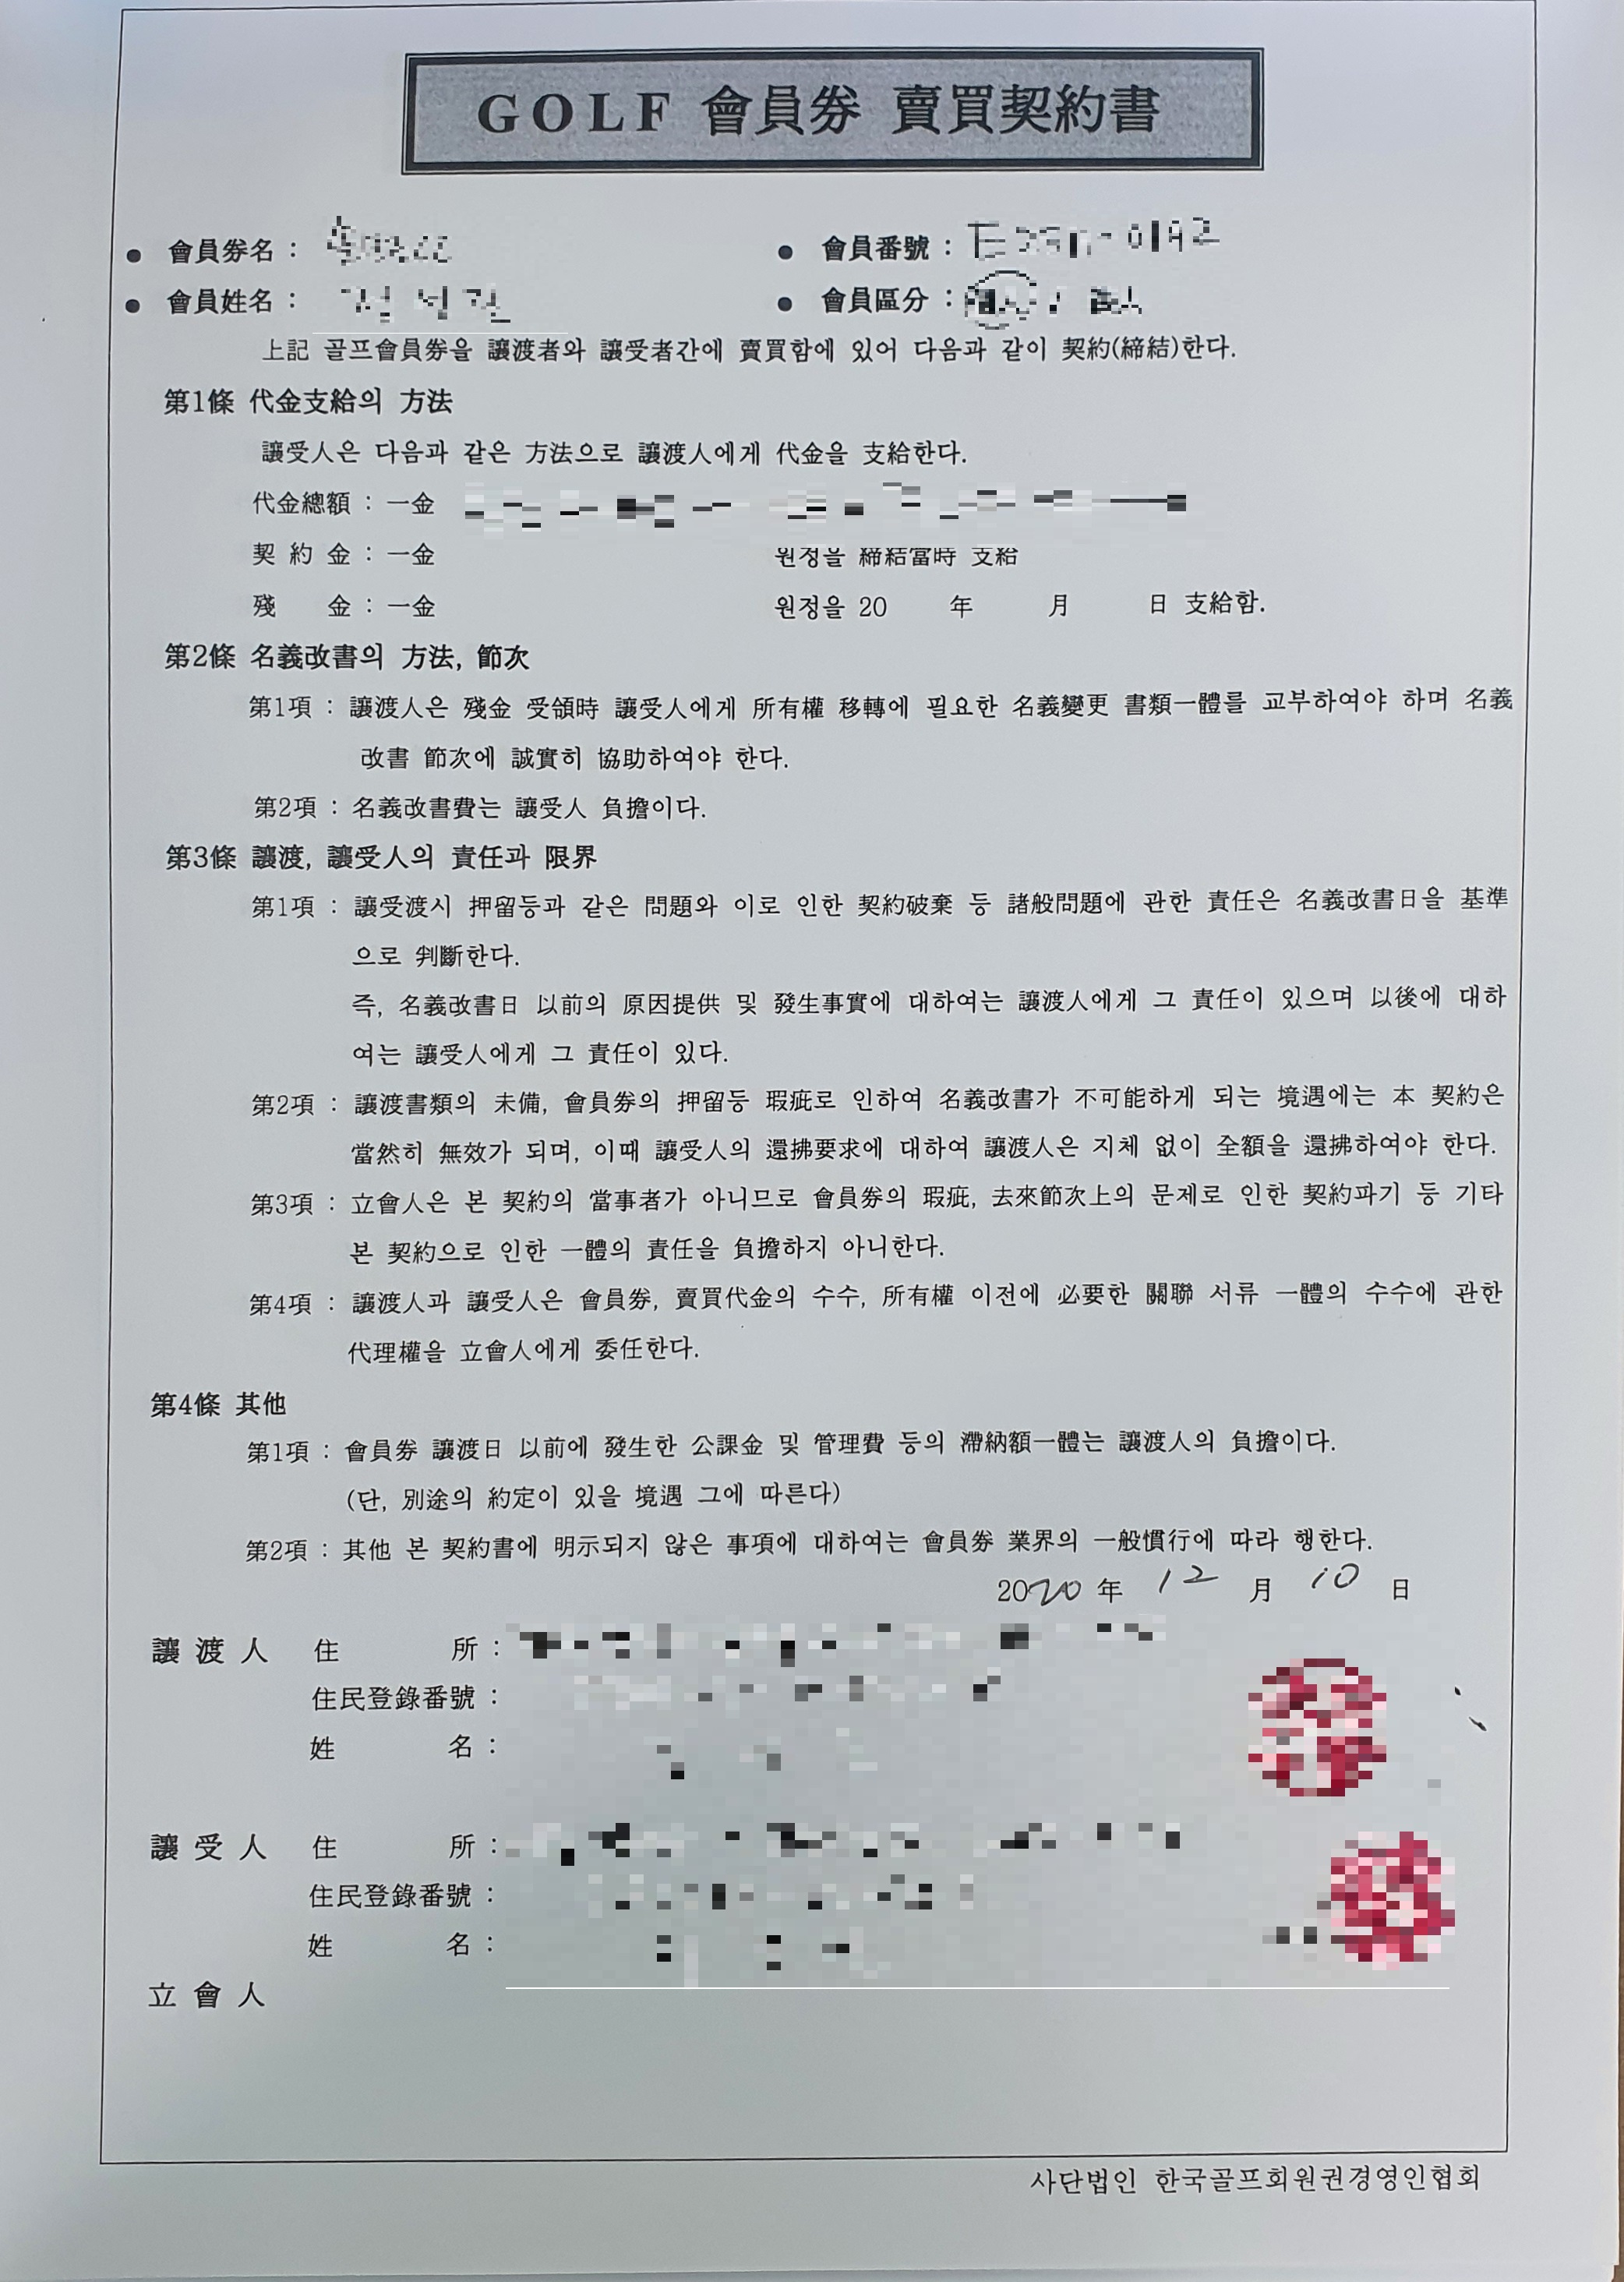 GOLF 會員券 賣買契約書
● 會員券名 : ● 會員番號 :
● 會員姓名 : ● 會員區分 :
上記 골프會員券을 讓渡者와 讓受者간에 賣買함에 있어 다음과 같이 契約(締結)한다.
第1條 代金支給의 方法
讓受人은 다음과 같은 方法으로 讓渡人에게 代金을 支給한다.
代金總額 : 一金
契 約 金 : 一金 원정을 締結當時 支給
殘 金 : 一金 원정을 20 年 月 日 支給함.
第2條 名義改書의 方法, 節次
第1項 : 讓渡人은 殘金 受領時 讓受人에게 所有權 移轉에 필요한 名義變更 書類一體를 교부하여야 하며 名義
改書 節次에 誠實히 協助하여야 한다.
第2項 : 名義改書費는 讓受人 負擔이다.
第3條 讓渡, 讓受人의 責任과 限界
第1項 : 讓受渡시 押留등과 같은 問題와 이로 인한 契約破棄 등 諸般問題에 관한 責任은 名義改書日을 基準
으로 判斷한다.
즉, 名義改書日 以前의 原因提供 및 發生事實에 대하여는 讓渡人에게 그 責任이 있으며 以後에 대하
여는 讓受人에게 그 責任이 있다.
第2項 : 讓渡書類의 未備, 會員券의 押留등 瑕疵로 인하여 名義改書가 不可能하게 되는 境遇에는 本 契約은
當然히 無效가 되며, 이때 讓受人의 還拂要求에 대하여 讓渡人은 지체 없이 全額을 還拂하여야 한다.
第3項 : 立會人은 본 契約의 當事者가 아니므로 會員券의 瑕疵, 去來節次上의 문제로 인한 契約파기 등 기타
본 契約으로 인한 一體의 責任을 負擔하지 아니한다.
第4項 : 讓渡人과 讓受人은 會員券, 賣買代金의 수수, 所有權 이전에 必要한 關聯 서류 一體의 수수에 관한
代理權을 立會人에게 委任한다.
第4條 其他
第1項 : 會員券 讓渡日 以前에 發生한 公課金 및 管理費 등의 滯納額一體는 讓渡人의 負擔이다.
(단, 別途의 約定이 있을 境遇 그에 따른다)
第2項 : 其他 본 契約書에 明示되지 않은 事項에 대하여는 會員券 業界의 一般慣行에 따라 행한다.
2020 年 12 月 10 日
讓 渡 人 住 所 :
住民登錄番號 :
姓 名 :
讓 受 人 住 所 :
住民登錄番號 :
姓 名 :
立 會 人
사단법인 한국골프회원권경영인협회